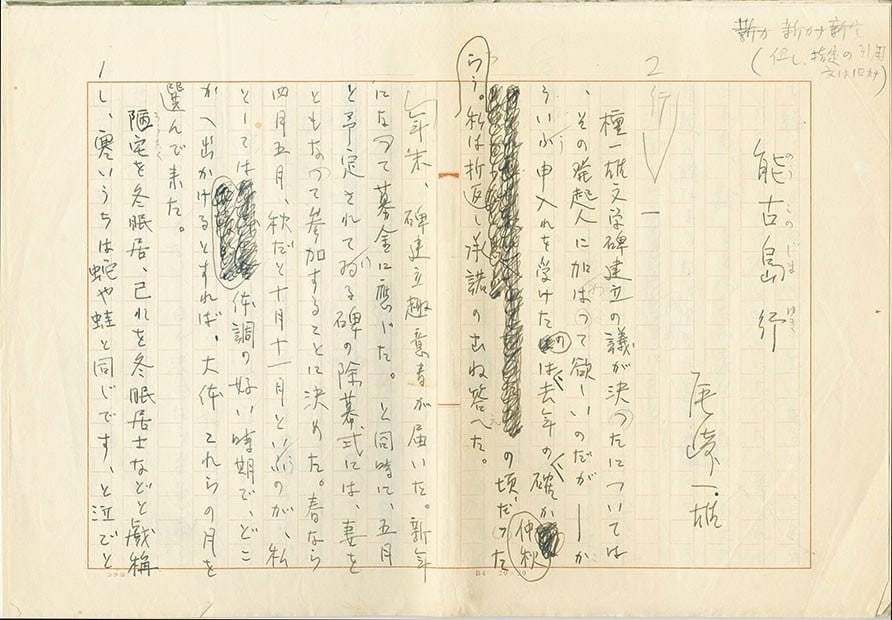 新かナ
(但し、指定の引用
文は旧かナ)
能古島行
のうこのじまゆき
尾崎一雄
2行
一
檀一雄文学碑建立の議が決つたについては
、その発起人に加はつて欲しいのだが――か
ういふ申入れを受けたのは去年の確か仲秋
の頃だつた
らう。私は折返し承諾の旨お答へした。
年末、碑建立趣意書が届いた。新年
になつて募金に應じた。と同時に、五月
と予定されてゐる碑の除幕式には、妻を
ともなつて参加することに決めた。春なら
四月五月、秋だと十月十一月といふのが、私
としては
体調の好い時期で、どこ
かへ出かけるとすれば、大体これらの月を
選んで来た。
陋宅を冬眠居、己れを冬眠居士などと戯称
し、寒いうちは蛇や蛙と同じです、と泣でと
B4 20×20